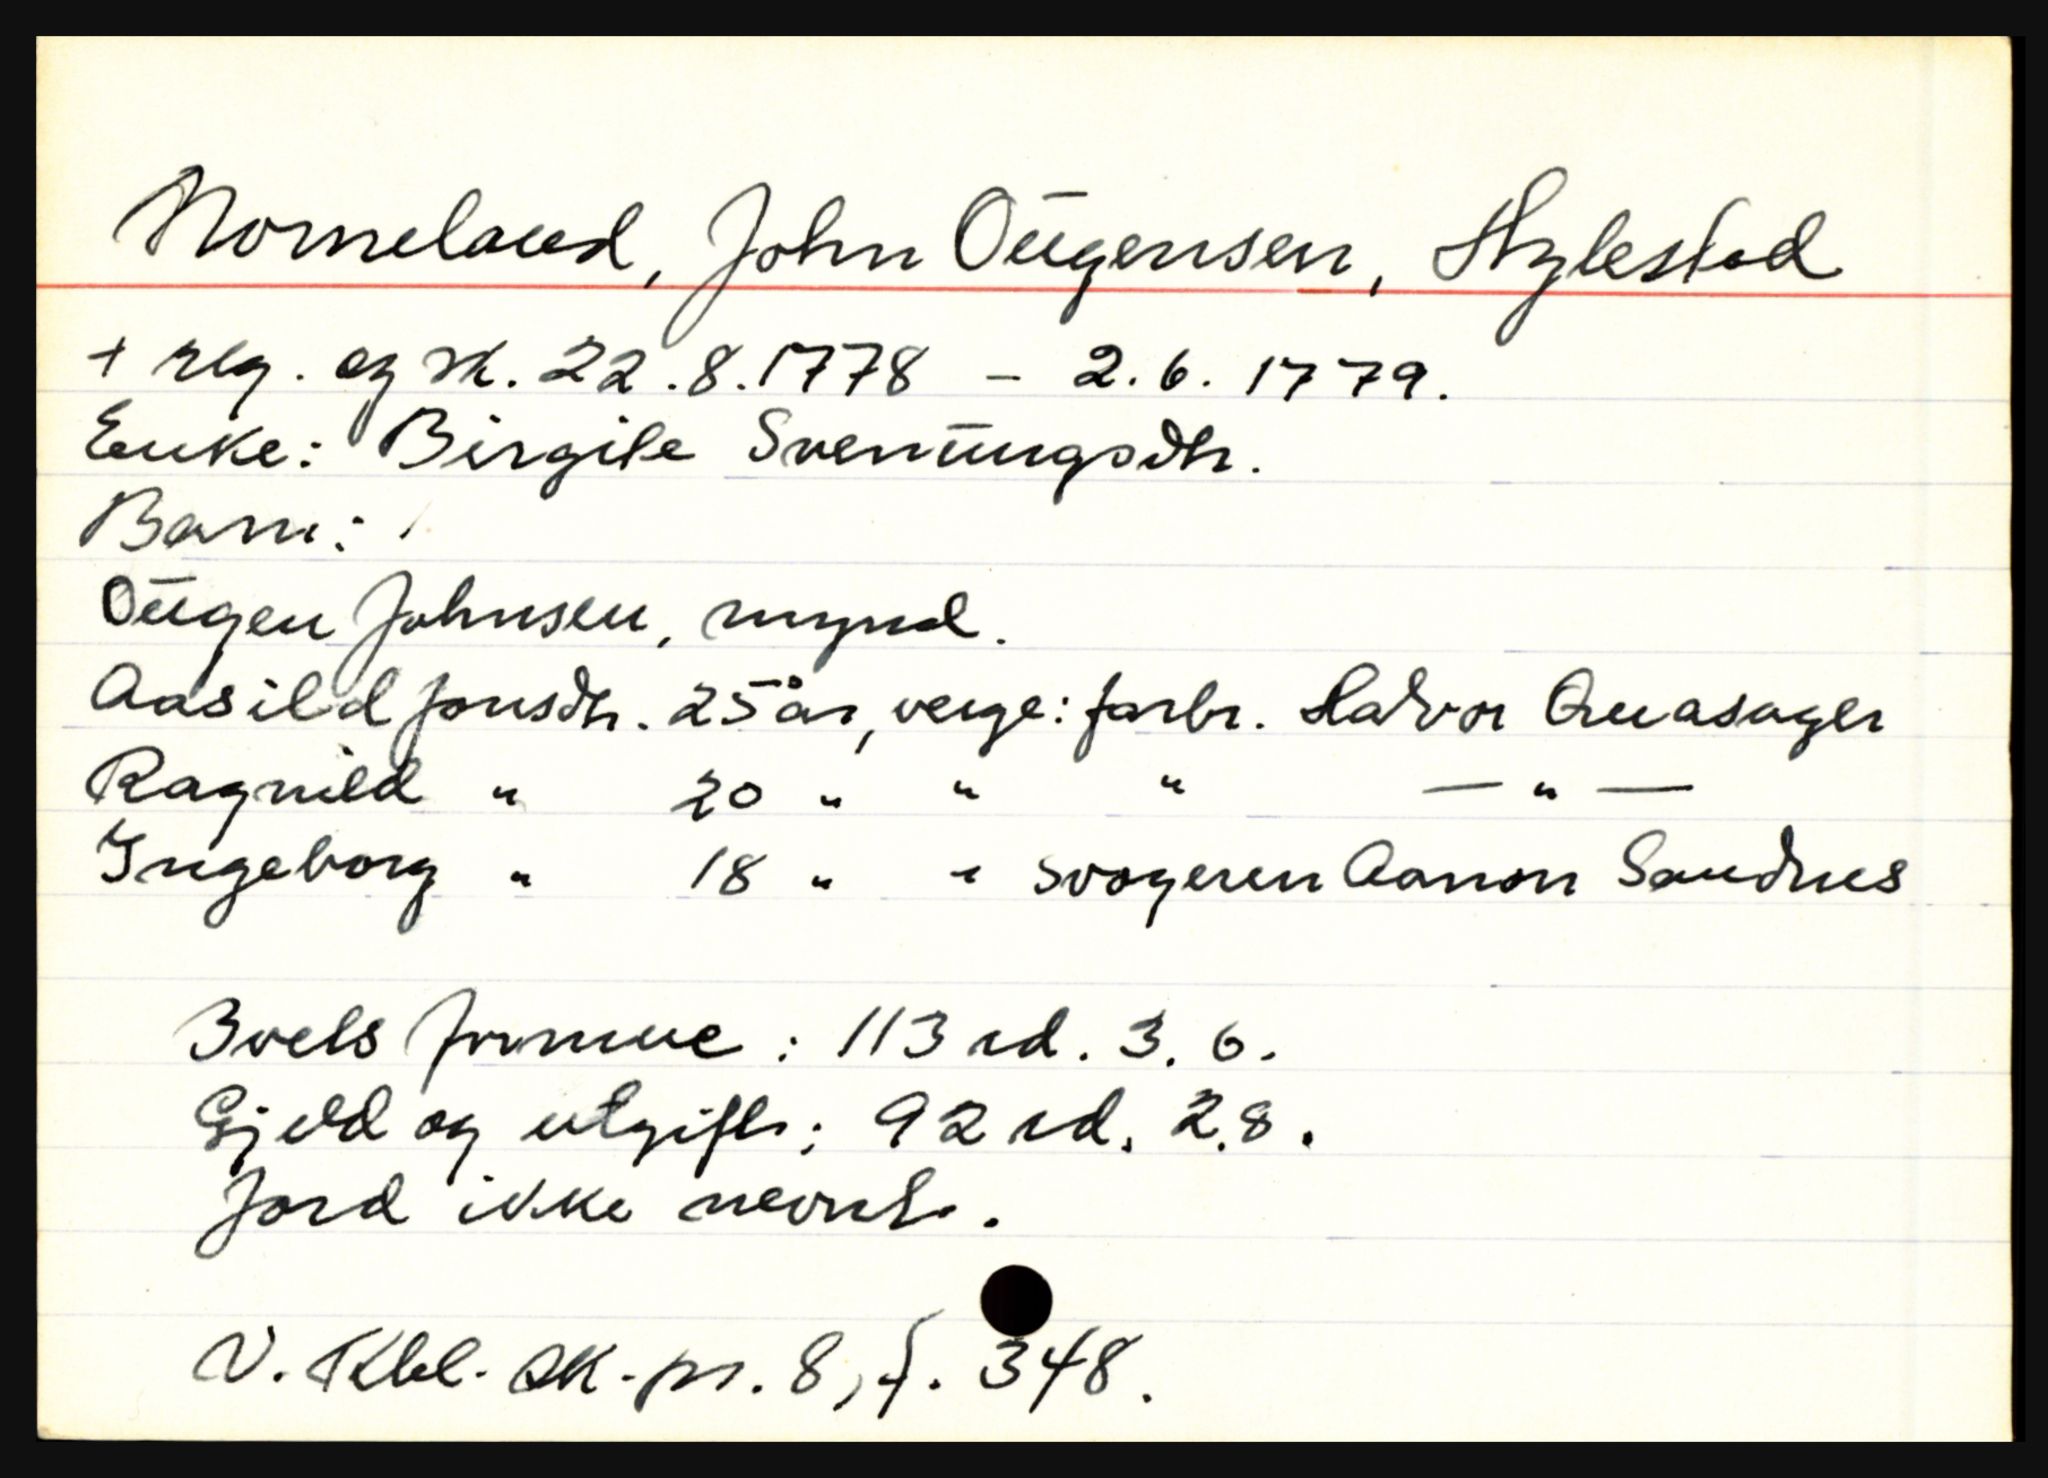 Nomeland, John Ougensen, Hylestad
+ reg. og sk. 22.8.1778 - 2.6.1779.
Enke: Birgite Svenungsdtr.
Barn:
Ougen Johnsen, mynd.
Aasild Jonsdtr. 25 år, verge: farbr. Halvor
Ragnild " 20 " " " — " —
Ingeborg " 18 " " svogeren Aanon Sandnes
Boets formue: 113 rd. 3. 6.
Gjeld og utgifter: 92 rd. 2.8.
Jord ikke nevnt.
V. Rbl. sk.pr. 8, f. 348.